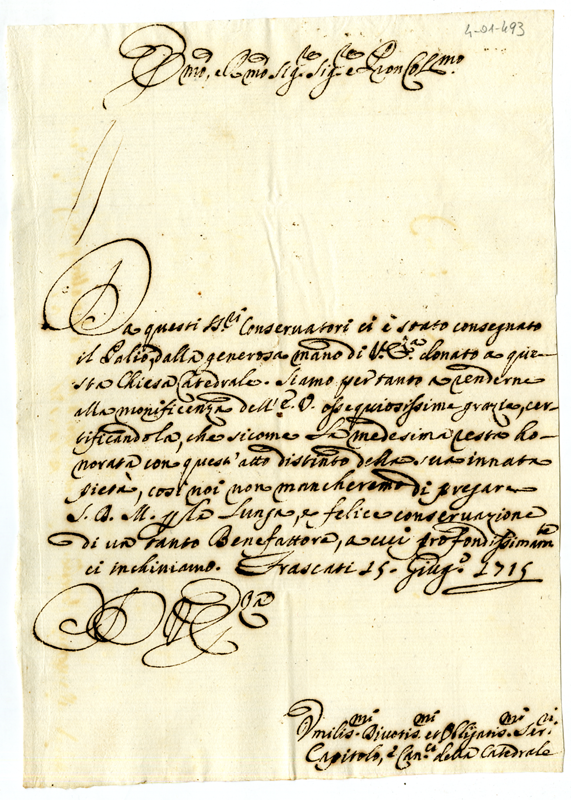 4-01-493
Emo, e Rmo Sigre Sigre e Pron Colmo.
Da questi SSri Conservatori ci è stato consegnato
il Palio, dalla generosa mano di V. Eza donato a que-
sta Chiesa Catedrale. Siamo per tanto a renderne
alla monificenza dell'E. V. ossequiosissime grazie, cer-
tificandola, che sicome la medesima resta ho-
norata con quest'atto distinto della sua innata
pietà, così noi non mancheremo di pregare
S. D. M. per la lunga, e felice conservazione
di un tanto Benefattore, a cui profondissimamte
ci inchiniamo. Frascati 15. Giugo 1715
D V Eza
Vmilismi Divotismi et Obligatismi Seri
Capitolo, e Canci della Catedrale